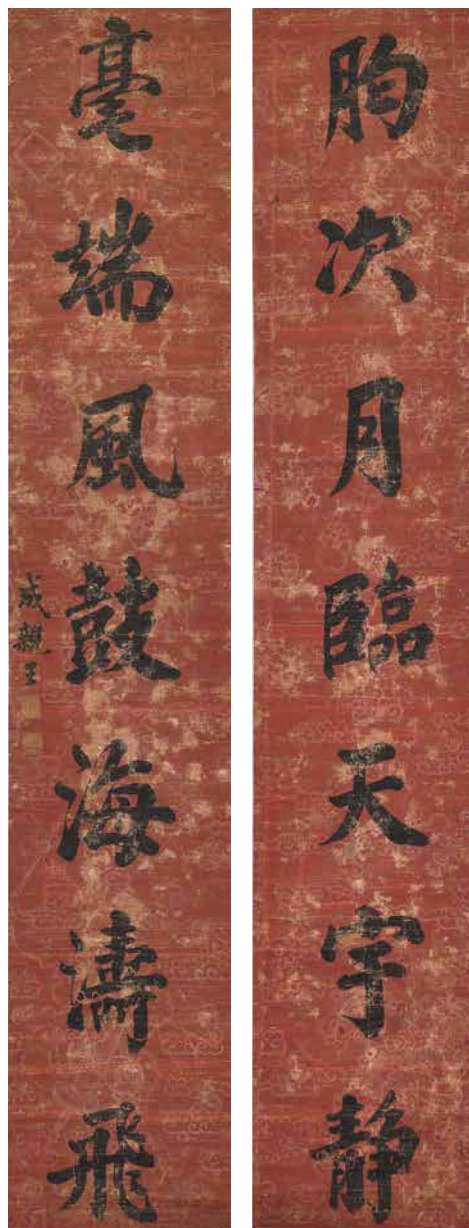 胸次月臨天宇静
毫端風鼓海濤飛
成親王